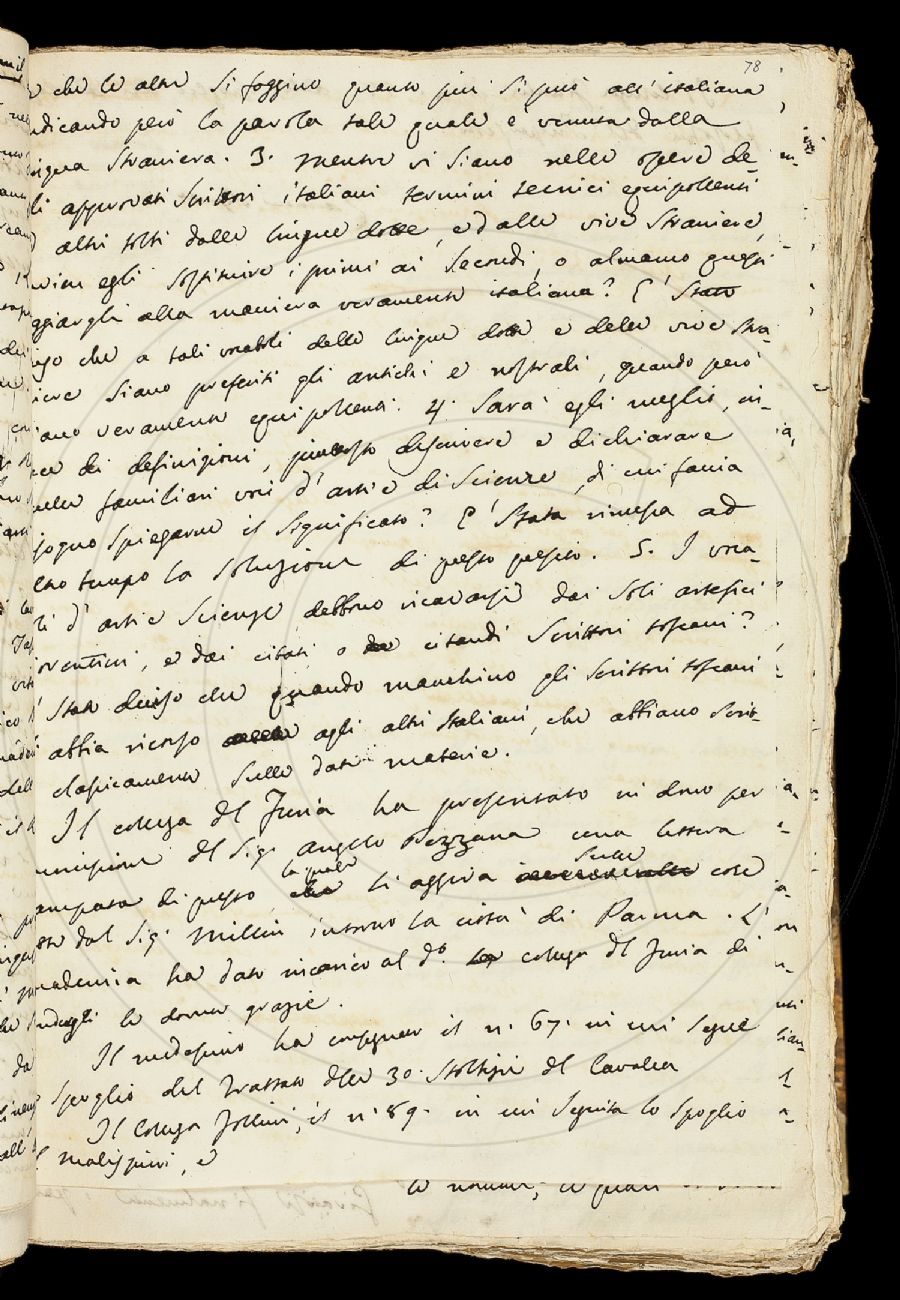 78
che le altre si foggino quanto più si può all'italiana
indicando però la parola tale quale è venuta dalla
lingua straniera. 3. Mentre vi siano nelle opere de-
gli approvati Scrittori italiani termini tecnici equipollenti
altri tolti dalle lingue dotte, e dalle vive straniere,
egli sostituire i primi ai secondi, o almeno questi
alla maniera veramente italiana? E' Stato
che a tali vocaboli delle lingue dotte e delle vive stra-
niere siano preferiti gli antichi e nostrali, quando però
siano veramente equipollenti. 4. Sarà egli meglio, in-
vece di definizioni, piuttosto descrivere e dichiarare
quelle familiari voci d'arti e di Scienze, di cui faccia
bisogno spiegarne il significato? E' Stata rimessa ad
altro tempo la soluzione di questo quesito. 5. I voca-
boli d'arti e Scienze debbono ricavarsi dai soli artefici
fiorentini, e dai citati, o citandi Scrittori toscani?
E' Stato deciso che quando manchino gli scrittori toscani
si abbia ricorso agli altri Italiani, che abbiano scrit-
to classicamente sulle date materie.
Il collega del Furia ha presentato in dono per
commissione del Sig. Angelo Pezzana una lettera
stampata di questo, la quale si aggira sulle cose
dette dal Sig. Millin intorno la città di Parma. L'
accademia ha dato incarico al do. collega del Furia di
rendergli le dovute grazie.
Il medesimo ha consegnato il n. 67. in cui segue
lo Spoglio del Trattato delle 30. Stoltizie del Cavalca
Il Collega Zollini, il n. 89. in cui seguita lo Spoglio
del Malispini, e